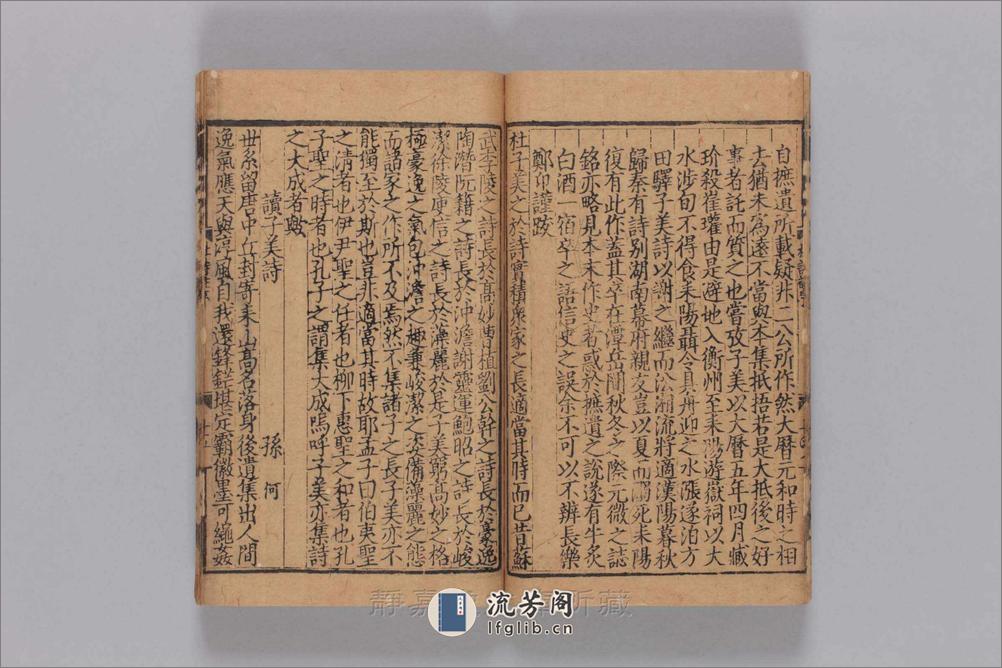 自摭遺所載疑非二公所作然大曆元和時之相
去猶未爲遠不當與本集抵捂若是大抵後之好
事者託而質之也嘗攷子美以大曆五年四月臧
玠殺崔瓘由是避地入衡州至耒陽游嶽祠以大
水涉旬不得食耒陽聶令具舟迎之水漲遂泊方
田驛子美詩以謝之繼而沿湘流將適漢陽暮秋
歸秦有詩别湖南幕府親友豈以夏而溺死耒陽
復有此作蓋其卒在潭岳間秋冬之際元微之誌
銘亦略見本末作史者惑於摭遺之說遂有牛炙
白酒一宿卒之語信史之誤余不可以不辨長樂
鄭卬謹跋
杜子美之於詩實積衆家之長適當其時而已昔蘇
武李陵之詩長於髙妙曹植劉公幹之詩長於豪逸
陶潛阮籍之詩長於沖澹謝靈運鮑昭之詩長於峻
潔徐陵庾信之詩長於藻麗於是子美窮髙妙之格
極豪逸之氣包沖澹之趣兼峻潔之姿備藻麗之態
而諸家之作所不及焉然不集諸子之長子美亦不
能獨至於斯也豈非適當其時故耶孟子曰伯夷聖
之清者也伊尹聖之任者也柳下惠聖之和者也孔
子聖之時者也孔子之謂集大成嗚呼子美亦集詩
之大成者歟
讀子美詩 孫何
世系留唐中丘封寄耒山髙名落身後遺集出人間
逸氣應天與淳風自我還鋒鋩堪定霸徽墨可繩姦
流芳阁
lfglib.cn